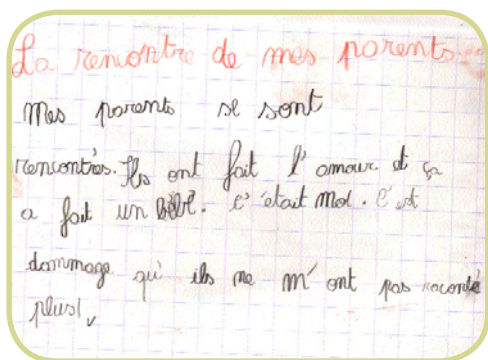 La rencontre de mes parents.
Mes parents se sont
rencontrés. Ils ont fait l'amour et ça
a fait un bébé. C'était moi. C'est
dommage qu'ils ne m'ont pas raconté
plus!